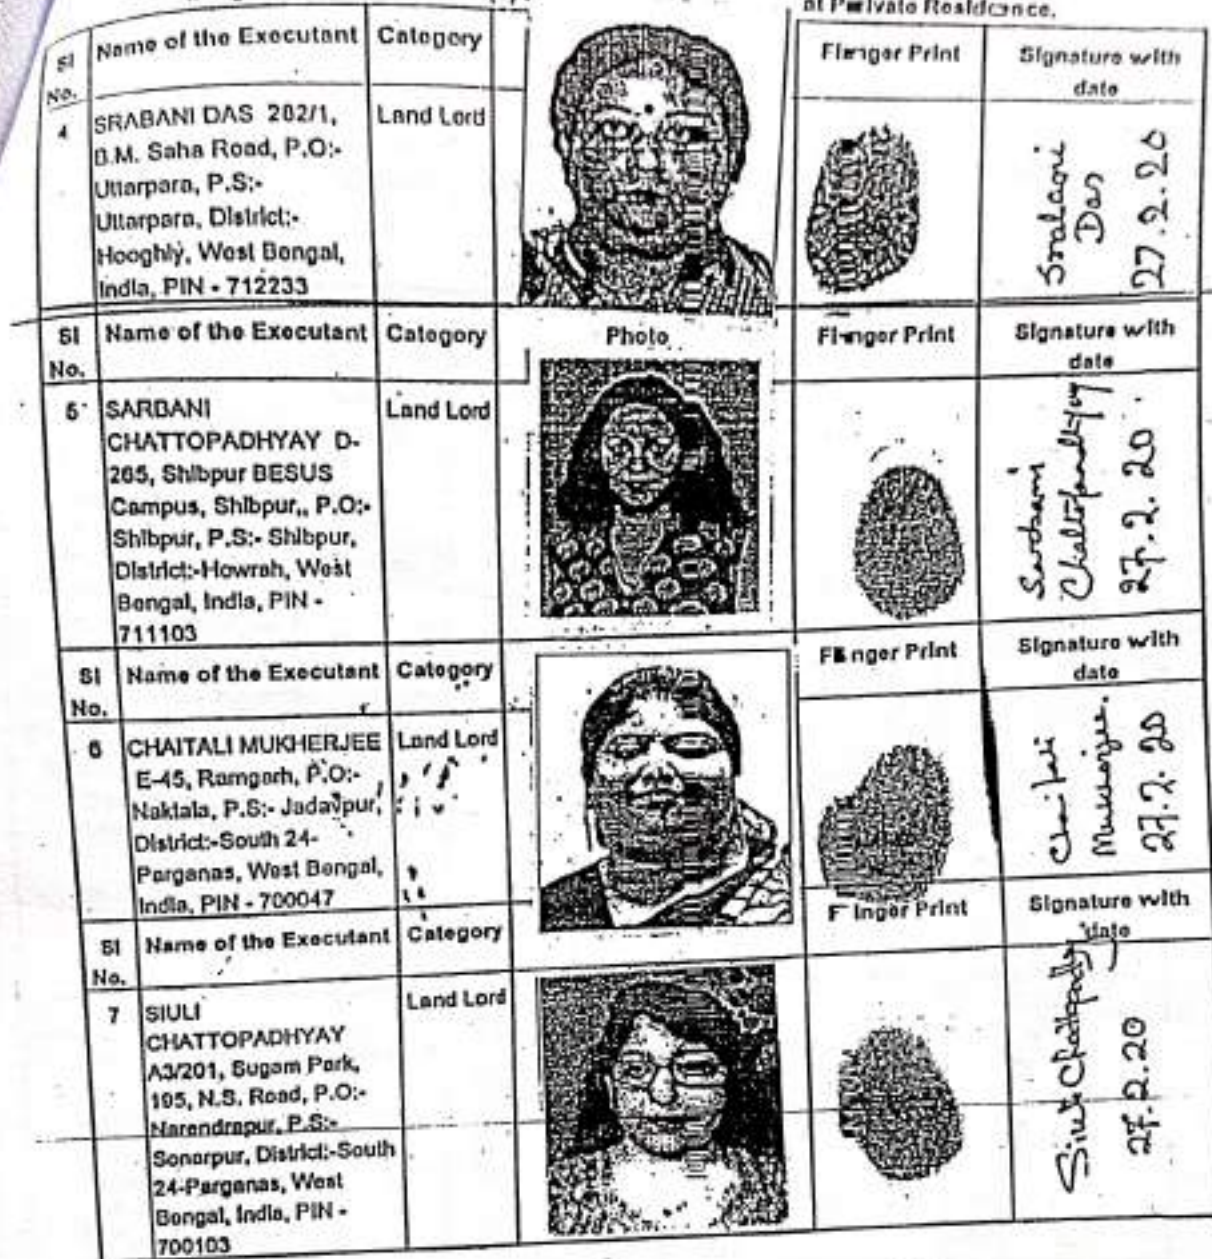 at Perivate Residence.
Sl No.
Name of the Executant
Category
Finger Print
Signature with date
4
SRABANI DAS 202/1,
B.M. Saha Road, P.O:-
Uttarpara, P.S:-
Uttarpara, District:-
Hooghly, West Bengal,
India, PIN - 712233
Land Lord
Srabani
Das
27.2.20
Sl No.
Name of the Executant
Category
Photo
Finger Print
Signature with date
5
SARBANI
CHATTOPADHYAY D-
265, Shibpur BESUS
Campus, Shibpur,, P.O:-
Shibpur, P.S:- Shibpur,
District:-Howrah, West
Bengal, India, PIN -
711103
Land Lord
Sarbani
Chattopadhyay
27.2.20
Sl No.
Name of the Executant
Category
Finger Print
Signature with date
6
CHAITALI MUKHERJEE
E-45, Ramgarh, P.O:-
Naktala, P.S:- Jadavpur,
District:-South 24-
Parganas, West Bengal,
India, PIN - 700047
Land Lord
Chaitali
Mukherjee.
27.2.20
Sl No.
Name of the Executant
Category
Finger Print
Signature with date
7
SIULI
CHATTOPADHYAY
A3/201, Sugam Park,
195, N.S. Road, P.O:-
Narendrapur, P.S:-
Sonarpur, District:-South
24-Parganas, West
Bengal, India, PIN -
700103
Land Lord
Siuli Chattopadhyay
27.2.20